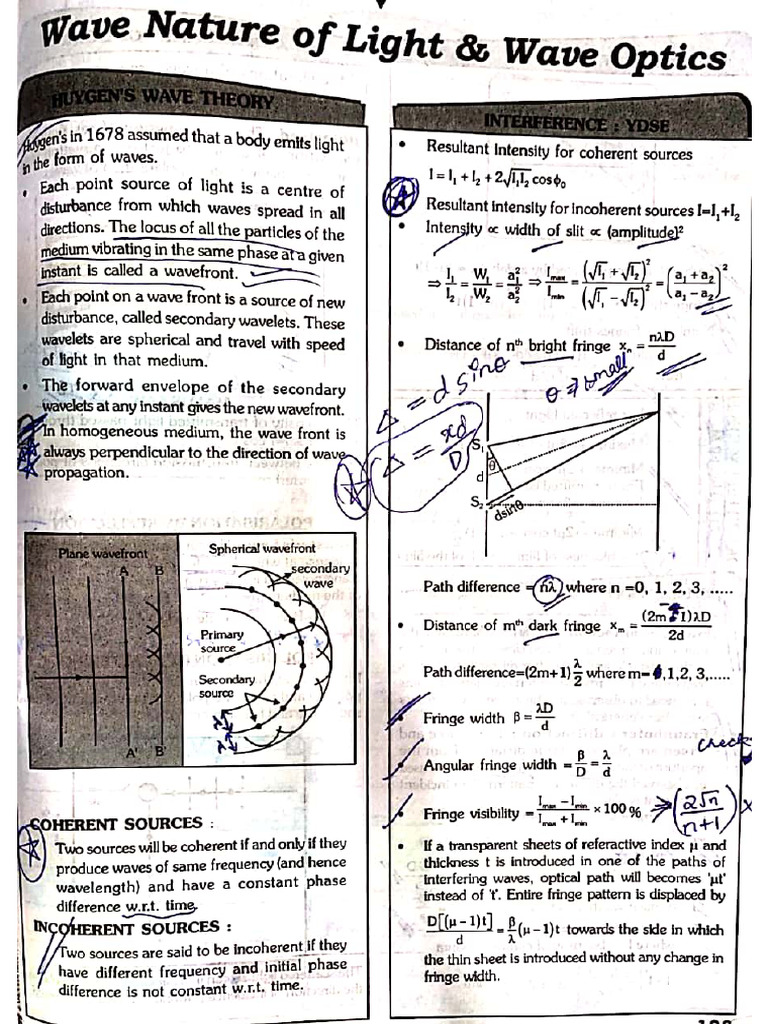 Wave Nature of Light & Wave Optics
HUYGEN'S WAVE THEORY
Huygen's in 1678 assumed that a body emits light
in the form of waves.
• Each point source of light is a centre of
disturbance from which waves spread in all
directions. The locus of all the particles of the
medium vibrating in the same phase at a given
instant is called a wavefront.
• Each point on a wave front is a source of new
disturbance, called secondary wavelets. These
wavelets are spherical and travel with speed
of light in that medium.
• The forward envelope of the secondary
wavelets at any instant gives the new wavefront.
In homogeneous medium, the wave front is
always perpendicular to the direction of wave
propagation.
Plane wavefront
A B
A' B'
Spherical wavefront
secondary
wave
Primary
source
Secondary
source
COHERENT SOURCES :
Two sources will be coherent if and only if they
produce waves of same frequency (and hence
wavelength) and have a constant phase
difference w.r.t. time.
INCOHERENT SOURCES :
Two sources are said to be incoherent if they
have different frequency and initial phase
difference is not constant w.r.t. time.
INTERFERENCE : YDSE
• Resultant Intensity for coherent sources
I = I₁ + I₂ + 2√(I₁I₂) cosϕ₀
Resultant Intensity for incoherent sources I=I₁+I₂
• Intensity ∝ width of slit ∝ (amplitude)²
⇒ I₁/I₂ = W₁/W₂ = a₁²/a₂² ⇒ Imax/Imin = (√I₁ + √I₂)²/(√I₁ − √I₂)² = ((a₁ + a₂)/(a₁ − a₂))²
• Distance of nth bright fringe xₙ = nλD/d
Δ = d sinθ
θ → small
Δ = xd/D
S₁
θ
d
S₂
dsinθ
Path difference = nλ where n =0, 1, 2, 3, .....
• Distance of mth dark fringe xₘ = (2m - 1)λD/2d
Path difference=(2m+1) λ/2 where m= 1,2,3,.....
• Fringe width β = λD/d
check
• Angular fringe width = β/D = λ/d
• Fringe visibility = (Imax − Imin)/(Imax + Imin) × 100 % → (2√n/n+1) x
• If a transparent sheets of referactive index µ and
thickness t is introduced in one of the paths of
interfering waves, optical path will becomes 'µt'
instead of 't'. Entire fringe pattern is displaced by
D[(µ−1)t]/d = β/λ (µ−1)t towards the side in which
the thin sheet is introduced without any change in
fringe width.